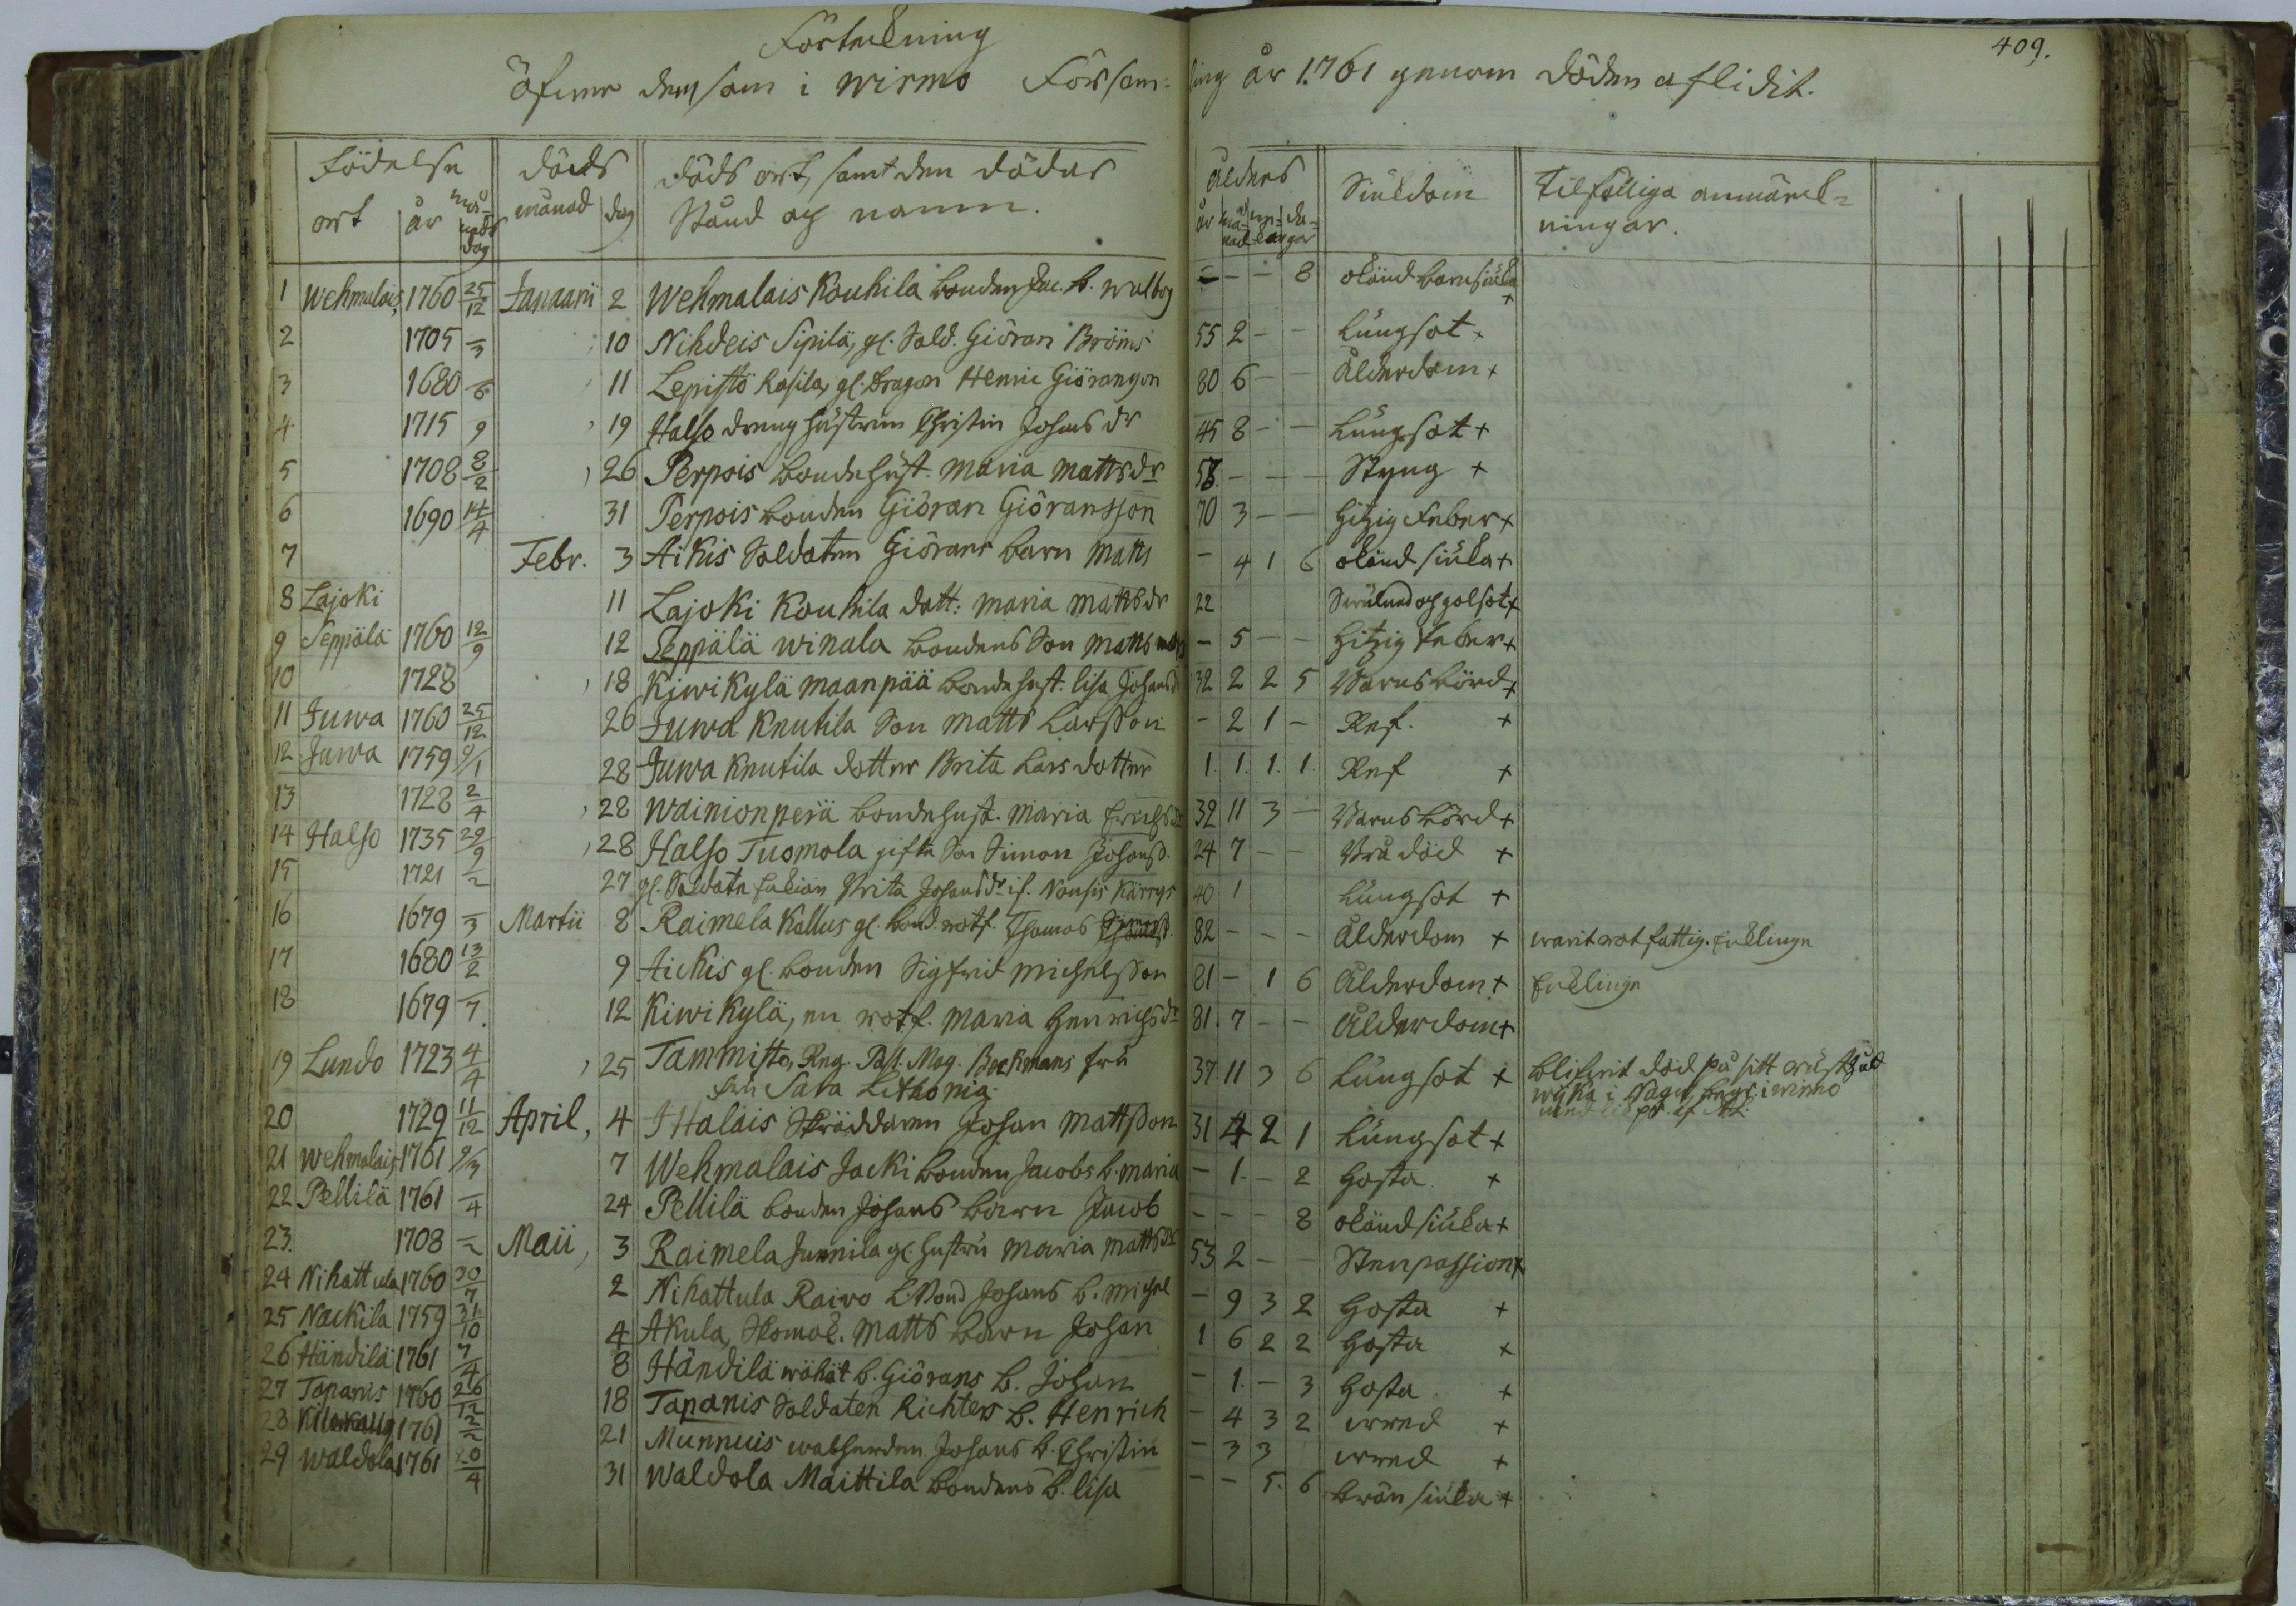 Förtekning
409.
öfwer dem som i Wirmo Församling år 1761 genom döden aflidit.
Födelse ort år månads dag | döds månad dag | döds ort, samt den dödas Stånd och namn. | ålders år månad wekor dagar | Siukdom | Tilfälliga anmärkningar.
1 Wehmalais, 1760 25/12 Januarii 2 Wehmalais Kouhila bonden Jac. b. Walbog - - - 8 okänd barnsiuka +
2 1705 -/3 10 Nihdeis Sipilä, gl. Sold. Giöran Bröms 55 2 - - Lungsot +
3 1680 6 11 Lepistö Rasila, gl. Dragon Henric Giörangson 80 6 - - Ålderdom +
4 1715 9 19 Halso dreng hustrun Christin Johans dr 45 8 - - Lungsot +
5 1708 8/2 26 Perpois bonde hust. Maria Matts dr 53. - - - Styng +
6 1690 14/4 31 Perpois bonden Giöran Giöransson 70 3 - - Hitzig Feber +
7 Febr. 3 Aikis Soldaten Giörans barn Matts - 4 1 6 okänd siuka +
8 Lajoki 11 Lajoki Kouhila dott: Maria Matts dr 22 och golsot +
9 Seppälä 1760 12/9 12 Seppälä Winala bondens Son Matts - 5 - - Hitzig Feber +
10 1728 18 Kiwikylä Maanpää bonde hust. Lisa Johans dr 32 2 2 5 Barnsbörd +
11 Juwa 1760 25/12 26 Juwa Knutila Son Matts Larsson - 2 1 - Ref. +
12 Juwa 1759 9/1 28 Juwa Knutila dotter Brita Lars dotter 1. 1. 1. 1. Ref +
13 1728 2/4 28 Wainionperä bonde hust. Maria Erichs dr 32 11 3 - Barnsbörd +
14 Halso 1735 29/9 28 Halso Tuomola gifte Son Simon Johanss. 24 7 - - Brå död +
15 1721 -/2 27 gl. Soldate Enkian Brita Johans dr if. Nousis Kärrys 40 1 Lungsot +
16 1679 -/3 Martii 8 Raimela Kallus gl. bond. rotf. Thomas 82 - - - Ålderdom + warit rot fattig. Enklinge
17 1680 13/2 9 Aickis gl. bonden Sigfrid Michelsson 81 - 1 6 Ålderdom + Enklinge
18 1679 -/7. 12 Kiwikylä, en rotf. Maria Henrichs dr 81. 7 - - Ålderdom +
19 Lundo 1723 4/4 25 Tammisto, Reg. Past. Mag. Beckmans fru 37. 11 3 6 Lungsot + blifwit död på sitt rusthåld
fru Sara Lithonia. i Nagu, begr. i Wirmo
20 1729 11/12 April, 4 Ihalais Skräddaren Johan Mattsson 31 4 2 1 Lungsot +
21 Wehmalais 1761 9/3 7 Wehmalais Jacki bonden Jacobs b. Maria - 1. - 2 Hosta +
22 Pellilä 1761 -/4 24 Pellilä bonden Johans barn Jacob - - - 8 okänd siuka +
23. 1708 -/2 Maii, 3 Raimela Junnila gl. hustru Maria Matts dr 53 2 - - Stenpassion +
24 Nihattula 1760 30/7 2 Nihattula Raivo L. Bond Johans b. Michel - 9 3 2 Hosta +
25 Nackila 1759 31/10 4 Akula, Skomak. Matts barn Johan 1 6 2 2 Hosta +
26 Händilä 1761 7/4 8 Händilä wähät b. Giörans b. Johan - 1. - 3 Hosta +
27 Tapanis 1760 26/12 18 Tapanis Soldaten Richters b. Henrich - 4 3 2 +
28 1761 -/2 21 Munnuis Johans b. Christin - 3 3 +
29 Waldola 1761 20/4 31 Waldola Maittila bondens b. Lisa - - 5. 6 siuka +